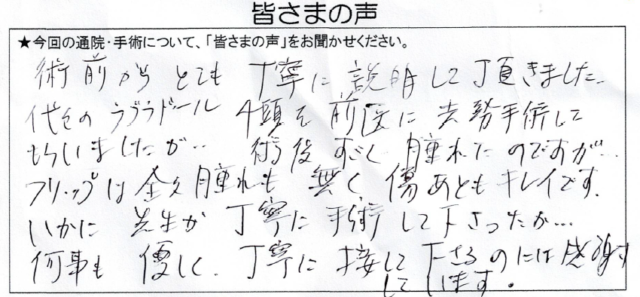 皆さまの声
★今回の通院・手術について、「皆さまの声」をお聞かせください。
術前から とても 丁寧に 説明して頂きました。
代々のラブラドール 4頭を前医に去勢手術して
もらいましたが‥ 術後すごく腫れたのですが‥
フリップは全く腫れも 無く 傷あともキレイです。
いかに 先生が 丁寧に 手術して下さったか…
何事も 優しく、丁寧に 接して下さるのには感謝
してします。